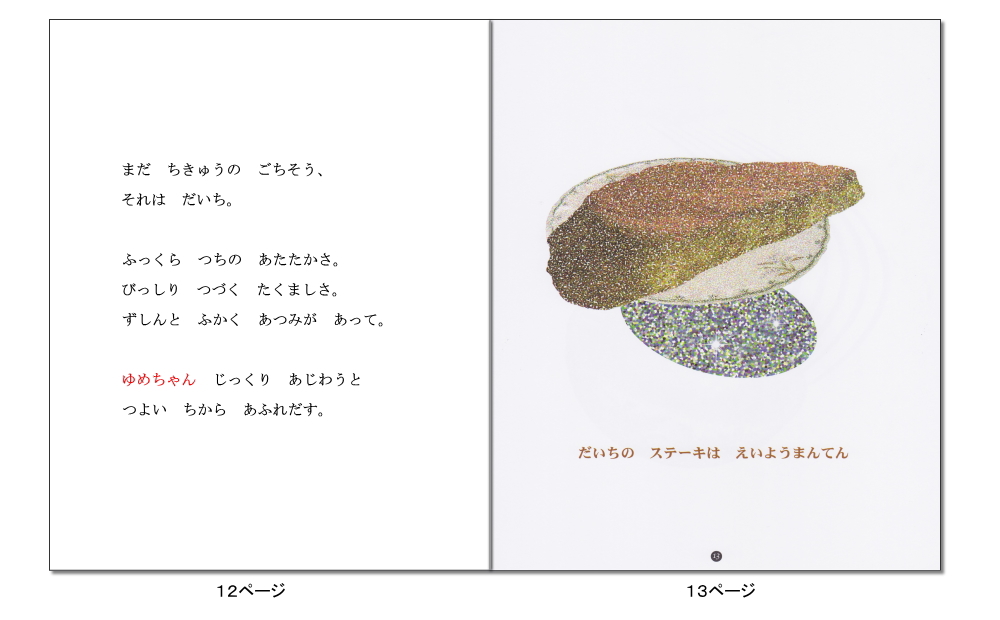 まだ　ちきゅうの　ごちそう、
それは　だいち。
ふっくら　つちの　あたたかさ。
びっしり　つづく　たくましさ。
ずしんと　ふかく　あつみが　あって。
ゆめちゃん　じっくり　あじわうと
つよい　ちから　あふれだす。
だいちの　ステーキは　えいようまんてん
13
12ページ
13ページ